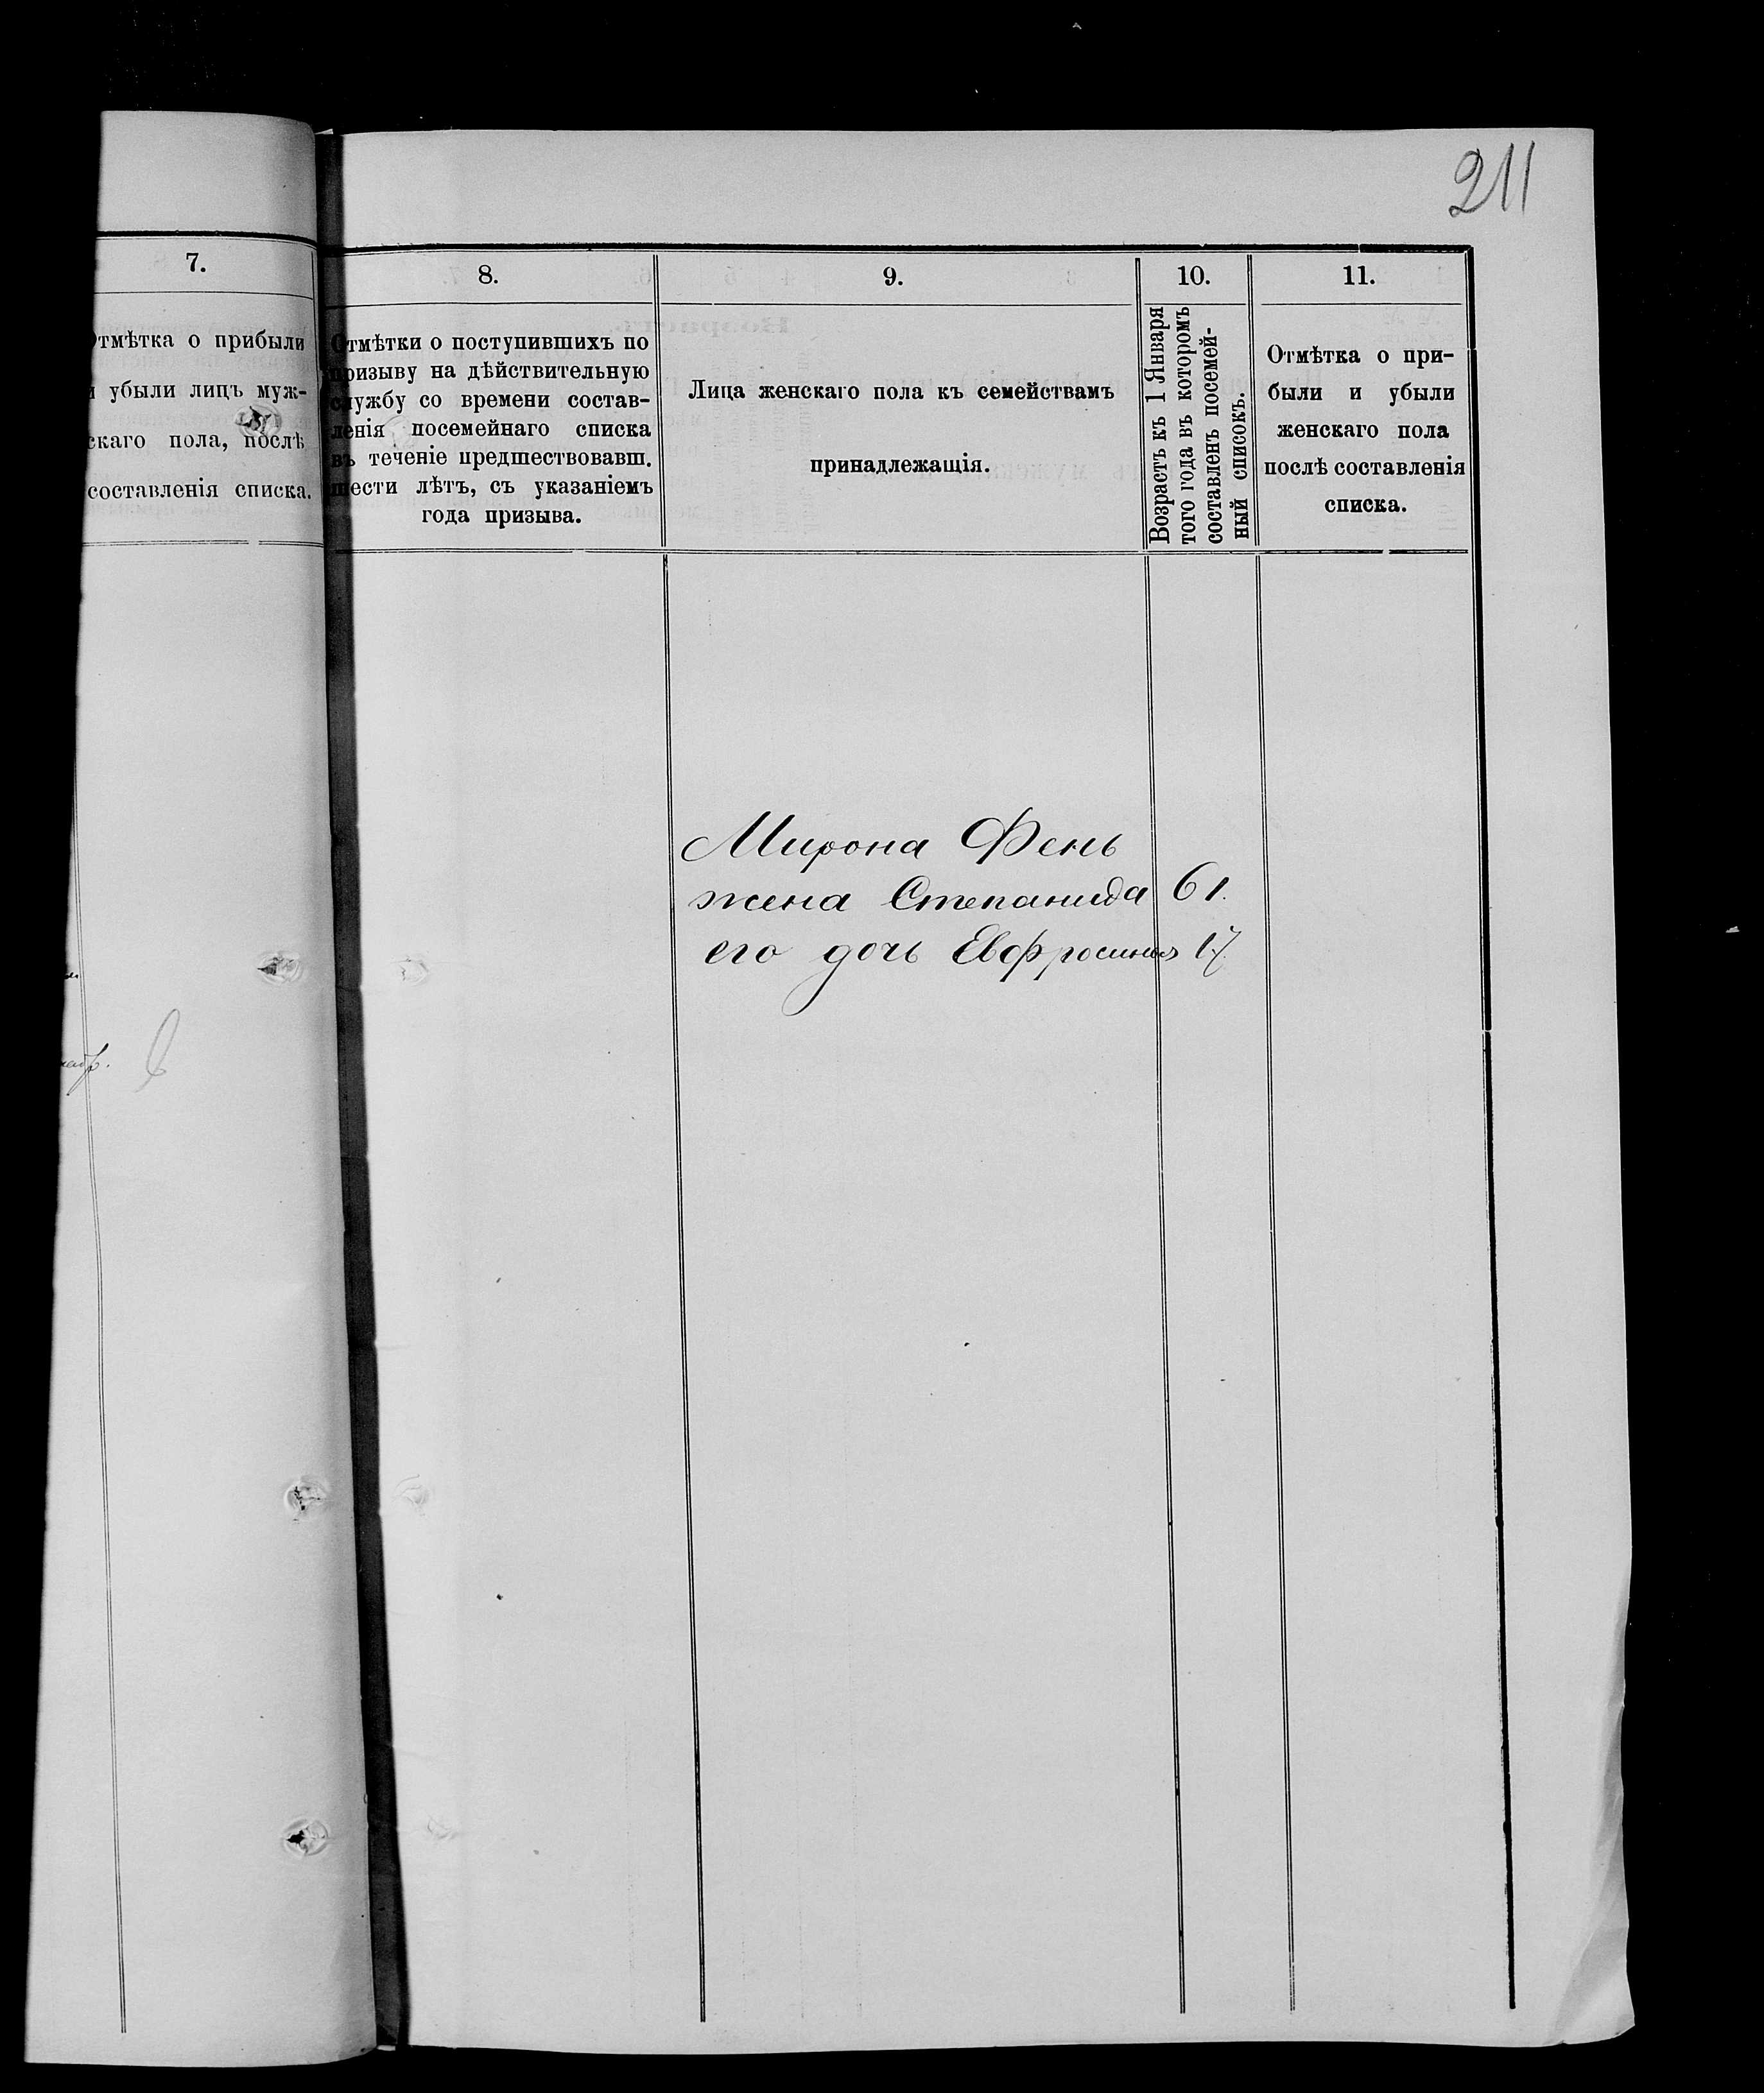 211
7.
Отмѣтка о прибыли
и убыли лицъ муж-
скаго пола, послѣ
составленія списка.
8.
Отмѣтки о поступившихъ по
призыву на дѣйствительную
службу со времени состав-
ленія посемейнаго списка
въ теченіе предшествовавш.
шести лѣтъ, съ указаніемъ
года призыва.
9.
Лица женскаго пола къ семействамъ
принадлежащія.
10.
Возрастъ къ 1 Января
того года въ которомъ
составленъ посемей-
ный списокъ.
11.
Отмѣтка о при-
были и убыли
женскаго пола
послѣ составленія
списка.
Мирона Фень
жена Степанида 61.
его дочь Евфросинія 17.